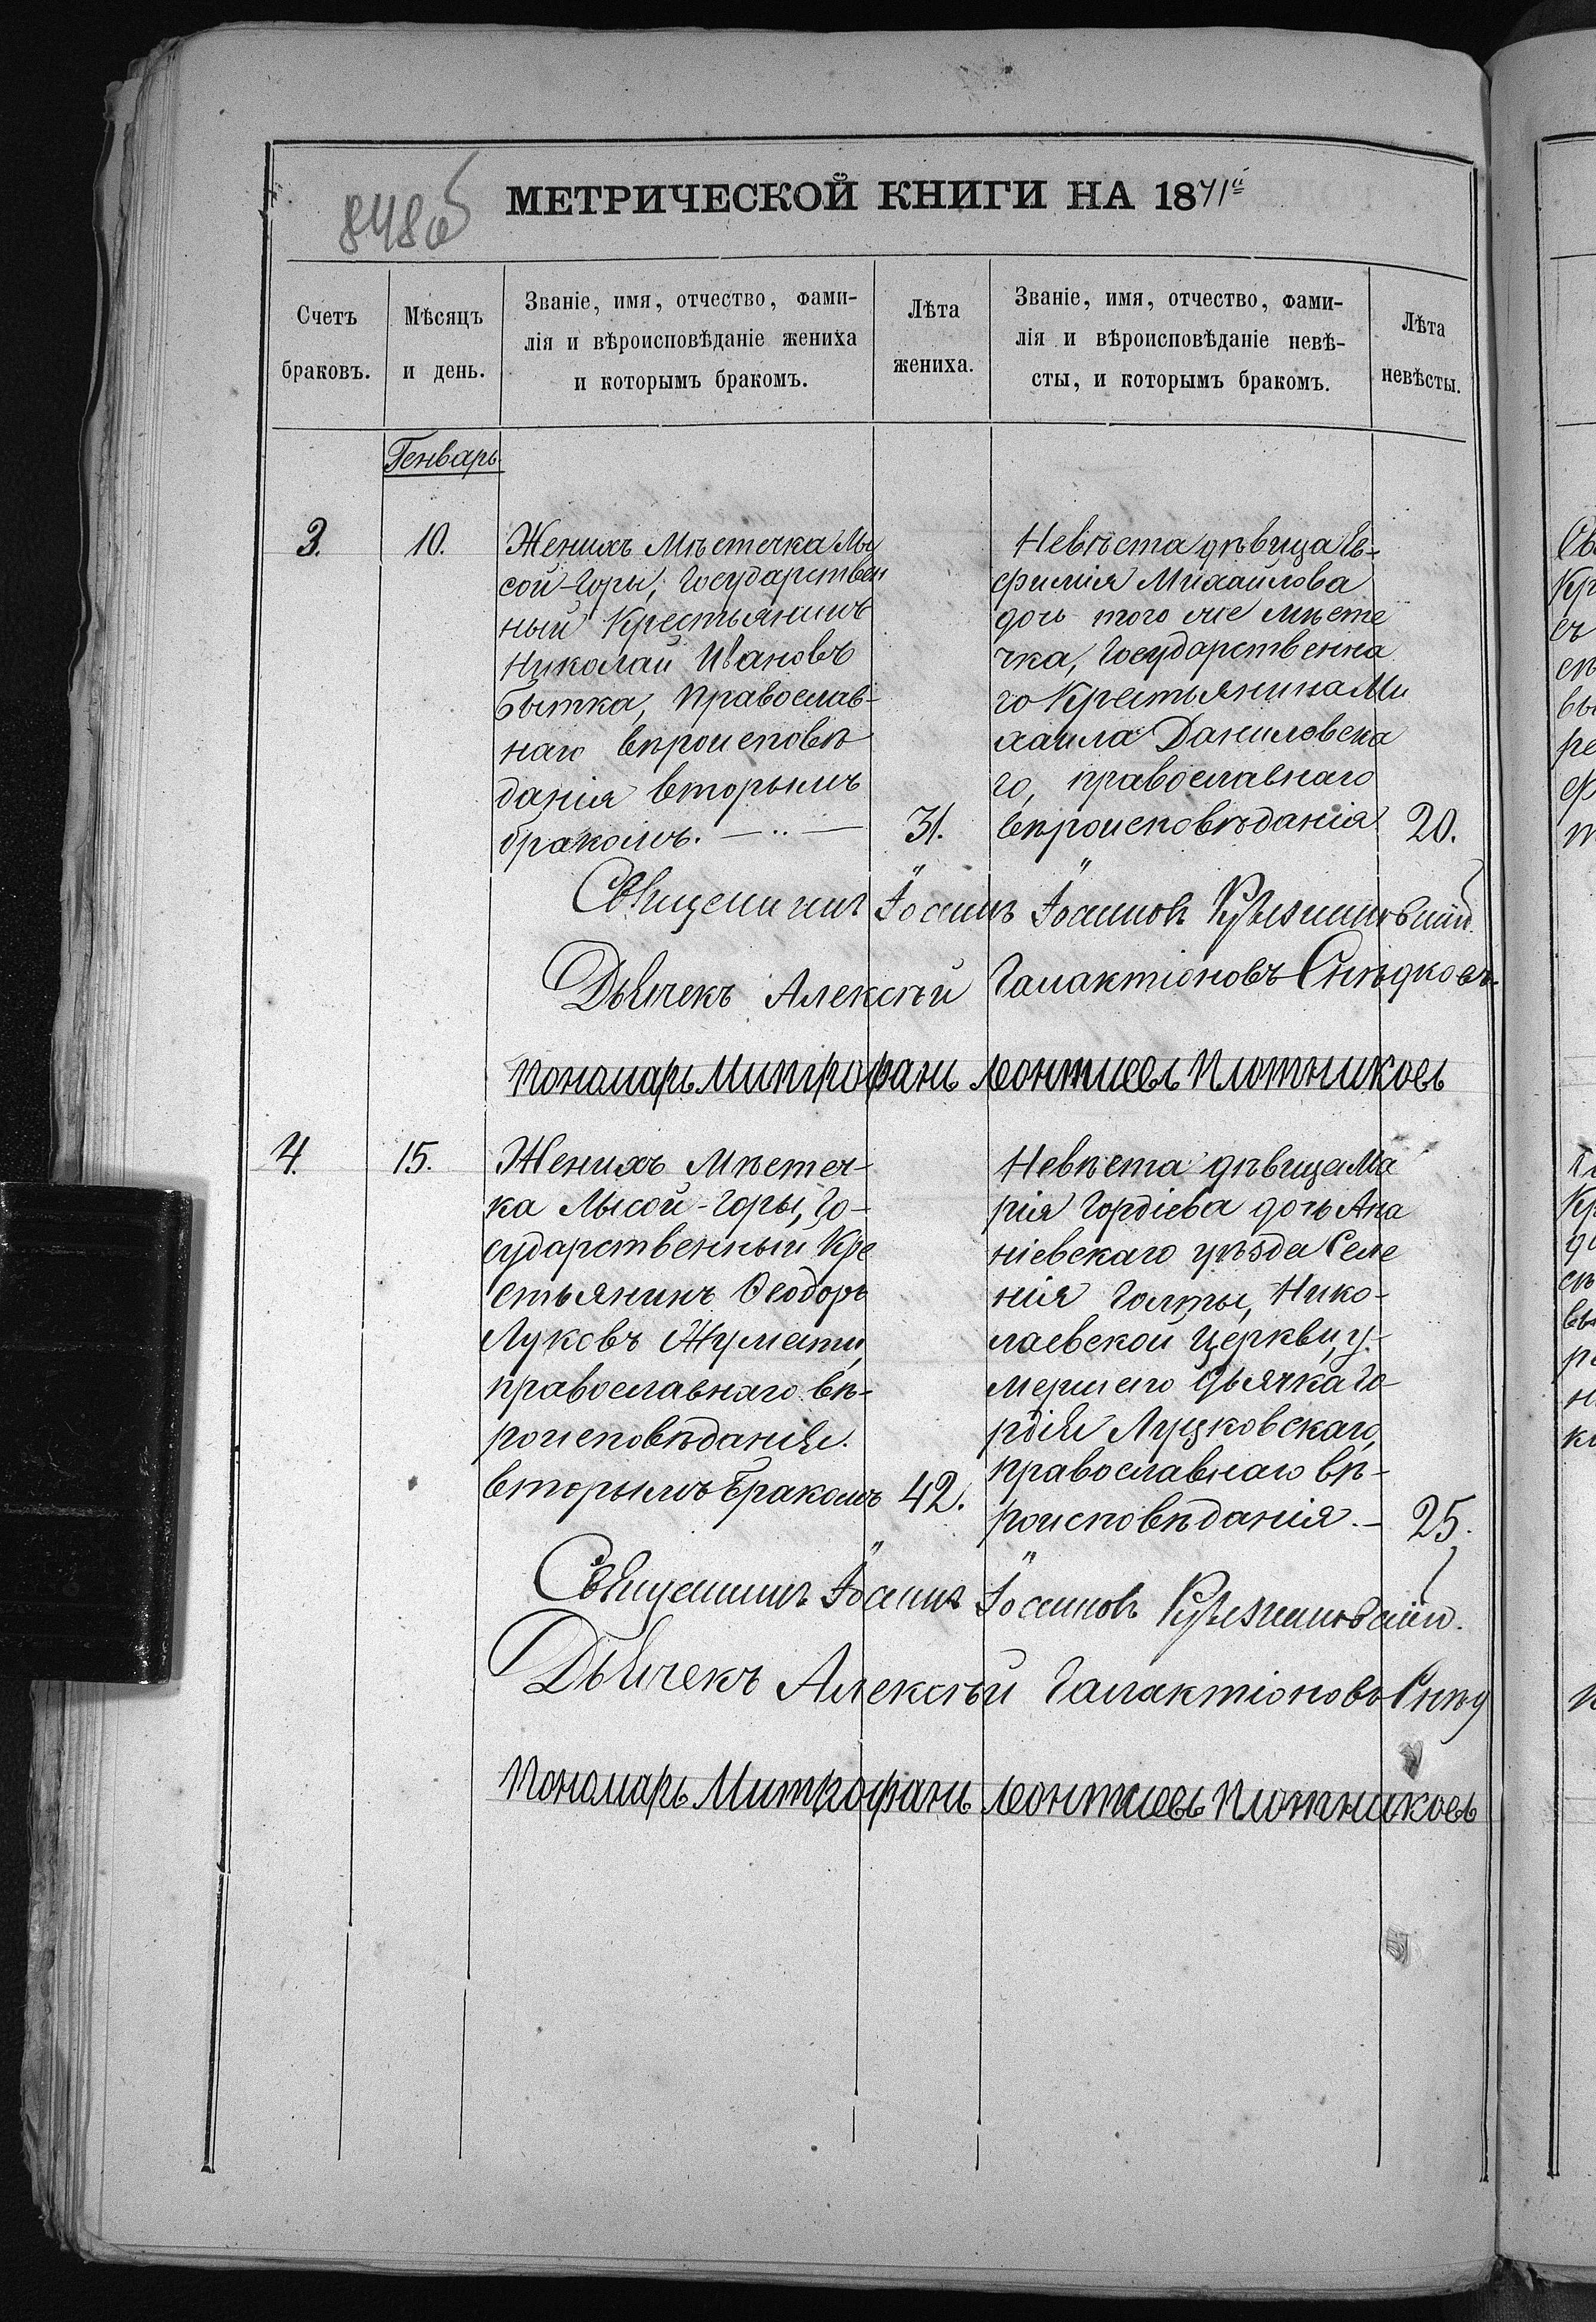 848об
МЕТРИЧЕСКОЙ КНИГИ НА 1871й
Счетъ
браковъ.
Мѣсяцъ
и день.
Званіе, имя, отчество, фами-
лія и вѣроисповѣданіе жениха
и которымъ бракомъ.
Лѣта
жениха.
Званіе, имя, отчество, фами-
лія и вѣроисповѣданіе невѣ-
сты, и которымъ бракомъ.
Лѣта
невѣсты.
Генварь
3.
10.
Женихъ Мѣстечка Лы
сой-Горы, Государствен
ный Крестьянинъ
Николай Ивановъ
Бытка, Православ-
наго вѣроисповѣ
данія вторымъ
бракомъ.
31.
Невѣста дѣвица Ев-
фимія Михайлова
дочь того же мѣсте
чка, Государственна
го Крестьянина Ми
хаила Даниловска
го, православнаго
вѣроисповѣданія
20.
Священникъ Іоаннъ Іоанновъ
Дьячекъ Алексѣй Галактіоновъ Снѣдковъ
Пономарь Митрофанъ Леонтиевъ Плотниковъ
4.
15.
Женихъ Мѣстеч-
ка Лысой-Горы, Го-
сударственный Кре
стьянинъ Ѳеодоръ
Луковъ Жумати,
православнаго вѣ-
роисповѣданія.
вторымъ бракомъ
42.
Невѣста дѣвица Ма
рія Гордіева дочь Ана
ніевскаго уѣзда Селе
нія Голты, Нико-
лаевской Церкви, у-
мершего Дьячка Го-
рдія Луцковскаго,
православнаго вѣ-
роисповѣданія.
25.
Священникъ Іоаннъ Іоанновъ
Дьячекъ Алексѣй Галактіоновъ Снѣд
Пономарь Митрофанъ Леонтиевъ Плотниковъ